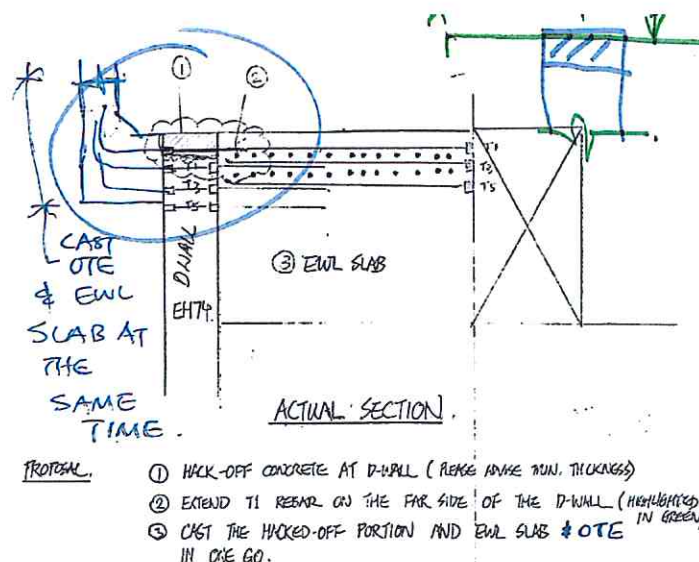 ①
②
T1
T3
T5
T1
T3
T5
D'WALL
EH74.
③ EWL SLAB
CAST
OTE
& EWL
SLAB AT
THE
SAME
TIME.
ACTUAL SECTION.
PROPOSAL.
① HACK-OFF CONCRETE AT D-WALL (PLEASE ADVISE MIN. THICKNESS)
② EXTEND T1 REBAR ON THE FAR SIDE OF THE D-WALL (HIGHLIGHTED
IN GREEN)
③ CAST THE HACKED-OFF PORTION AND EWL SLAB & OTE
IN ONE GO.